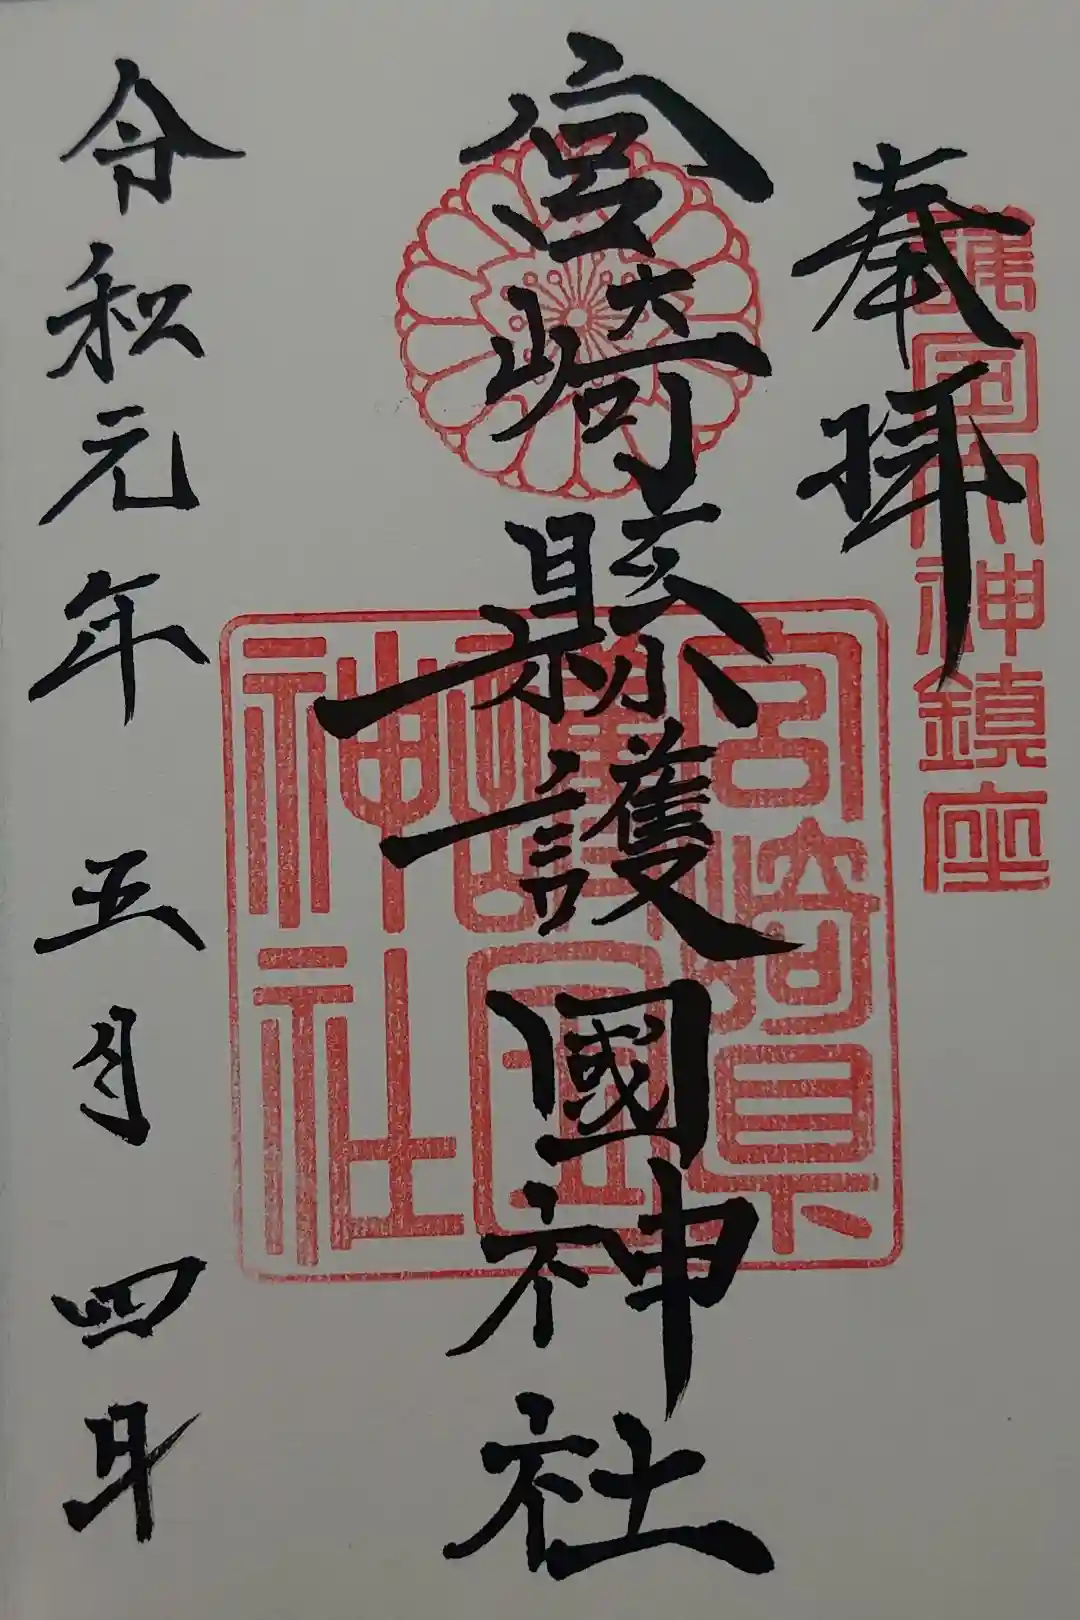 護国大神鎮座
奉拝
宮崎縣護國神社
宮崎県
護国
神社
令和元年五月四日